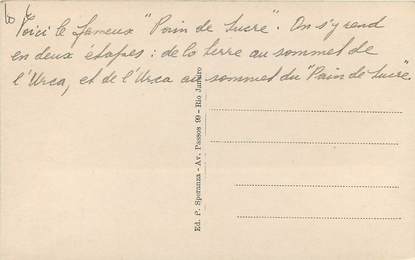 Voici le fameux "Pain de Sucre". On s'y rend
en deux étapes : de la terre au sommet de
l'Urca, et de l'Urca au sommet du "Pain de Sucre"
Ed. P. Speranza - Av. Passos 99 - Rio Janeiro